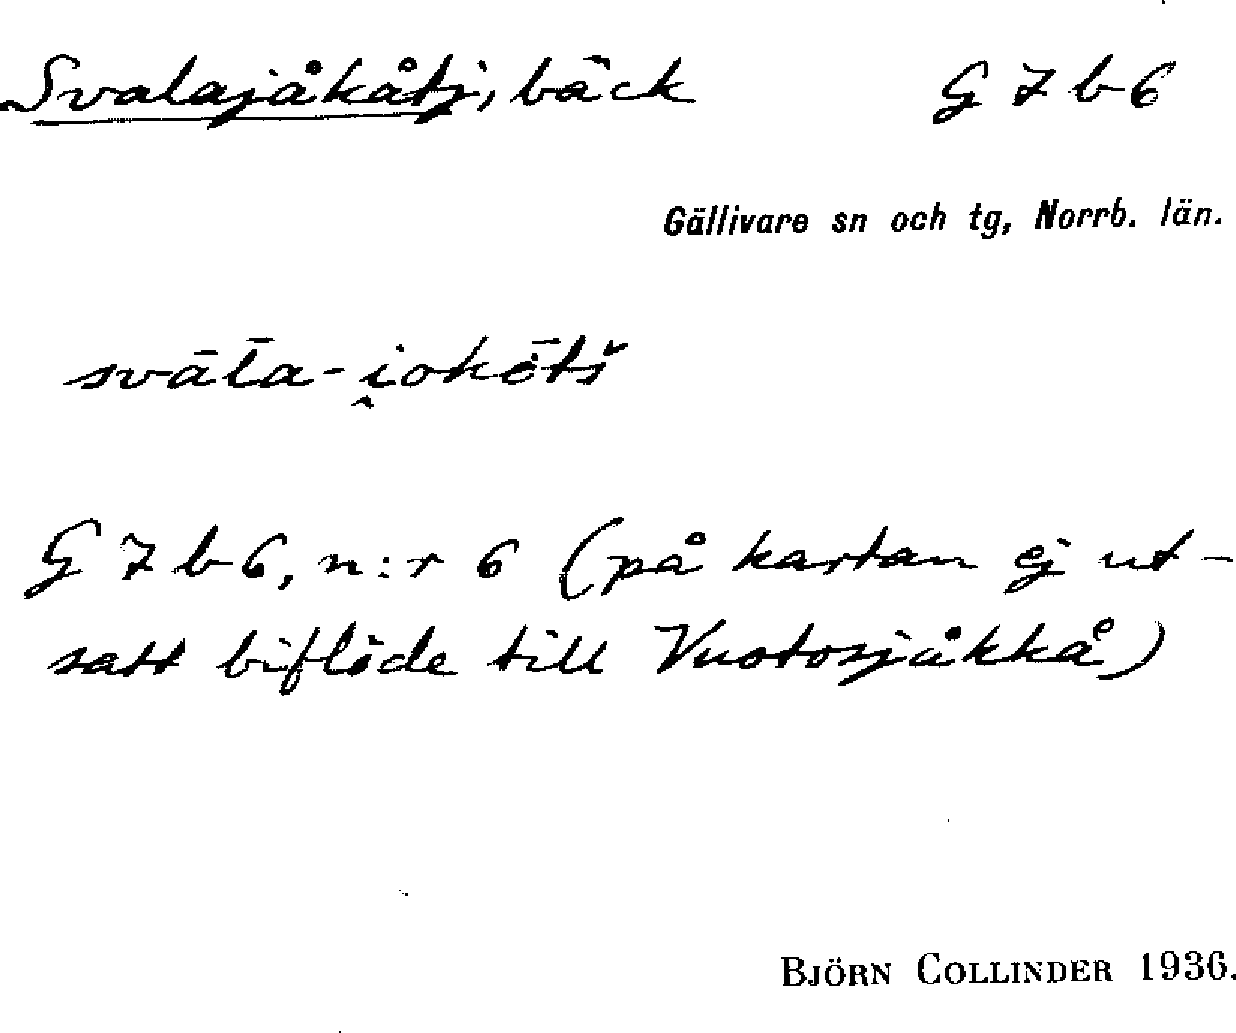 Svalajåkåtj, bäck G 7 b 6
Gällivare sn och tg, Norrb. län.
svāl̄a-i̭okēt̄š
G 7 b 6, n:r 6 (på kartan ej ut-
satt biflöde till Vuotosjåkkå)
BJÖRN COLLINDER 1936.